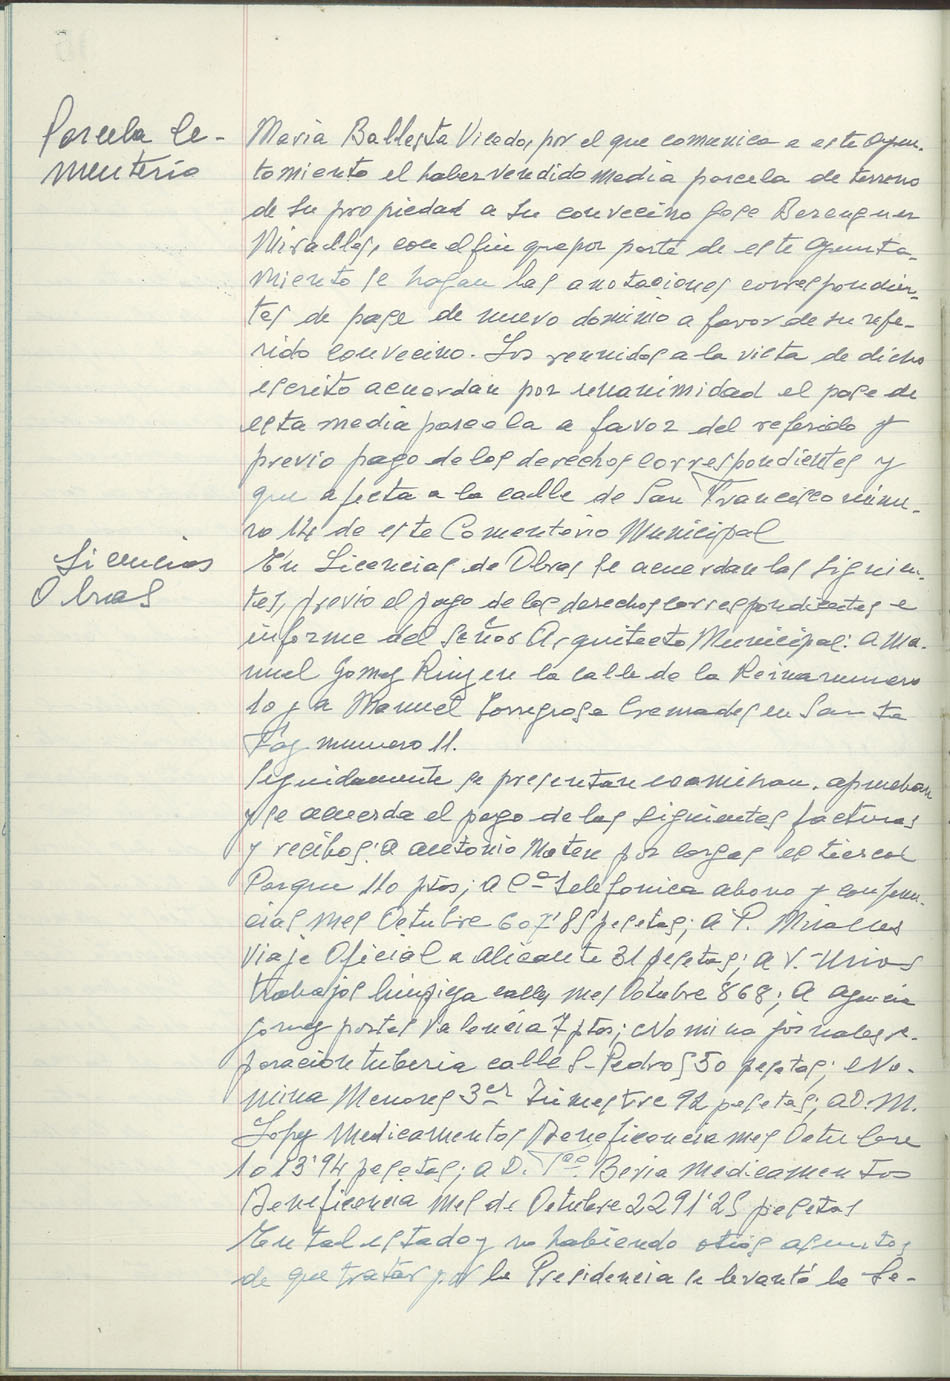 Parcela Ce-
menterio
Maria Ballesta Vicado, por el que comunica a este Ayun-
tamiento el haber vendido media parcela de terreno
de su propiedad a su convecino Jose Berenguer
Miralles, con el fin que por parte de este Ayunta-
miento se hagan las anotaciones correspondien-
tes de pase de nuevo dominio a favor de su refe-
rido convecino. Los reunidos a la vista de dicho
escrito acuerdan por unanimidad el pase de
esta media parcela a favor del referido y
previo pago de los derechos correspondientes y
que afecta a la calle de San Francisco núme-
ro 14 de este Cementerio Municipal
Licencias
Obras
En Licencias de Obras se acuerdan las siguien-
tes, previo el pago de los derechos correspondientes e
informe del Señor Arquitecto Municipal: a Ma-
nuel Gomez Ruiz en la calle de la Reina numero
10 y a Manuel Torregrosa Cremades en Santa
Faz numero 11.
Seguidamente se presentan examinan, aprueban
y se acuerda el pago de las siguientes facturas
y recibos: a Antonio Mateu por cargas estiercol
Parque 110 ptas; a Cª Telefonica abono y conferen-
cias mes Octubre 607'85 pesetas; a P. Miralles
Viaje Oficial a Alicante 31 pesetas; a V. Urios
trabajos limpieza calles mes Octubre 868; a Agencia
Gomez portes Valencia 7 ptas; Nomina jornales re-
paracion tuberia calle S. Pedro 550 pesetas; No-
mina Menores 3er Trimestre 92 pesetas; a D. M.
Lopez Medicamentos Beneficencia mes Octubre
1013'94 pesetas; a D. Fco Beria medicamentos
Beneficencia mes de Octubre 2291'25 pesetas
En tal estado y no habiendo otros asuntos
de que tratar por la Presidencia se levantó la Se-